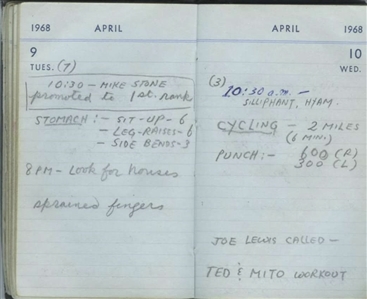 1968 APRIL
9
TUES. (7)
10:30 - MIKE STONE
promoted to 1st. rank
STOMACH :- SIT-UP - 6
- LEG-RAISES - 6
- SIDE BENDS - 3
8 PM - Look for houses
sprained fingers
APRIL 1968
10
WED.
(3)
10:30 a.m. -
SILLIPHANT, HYAM.
CYCLING - 2 MILES
(6 MIN.)
PUNCH :- 600 (R)
300 (L)
JOE LEWIS CALLED -
TED & MITO WORKOUT